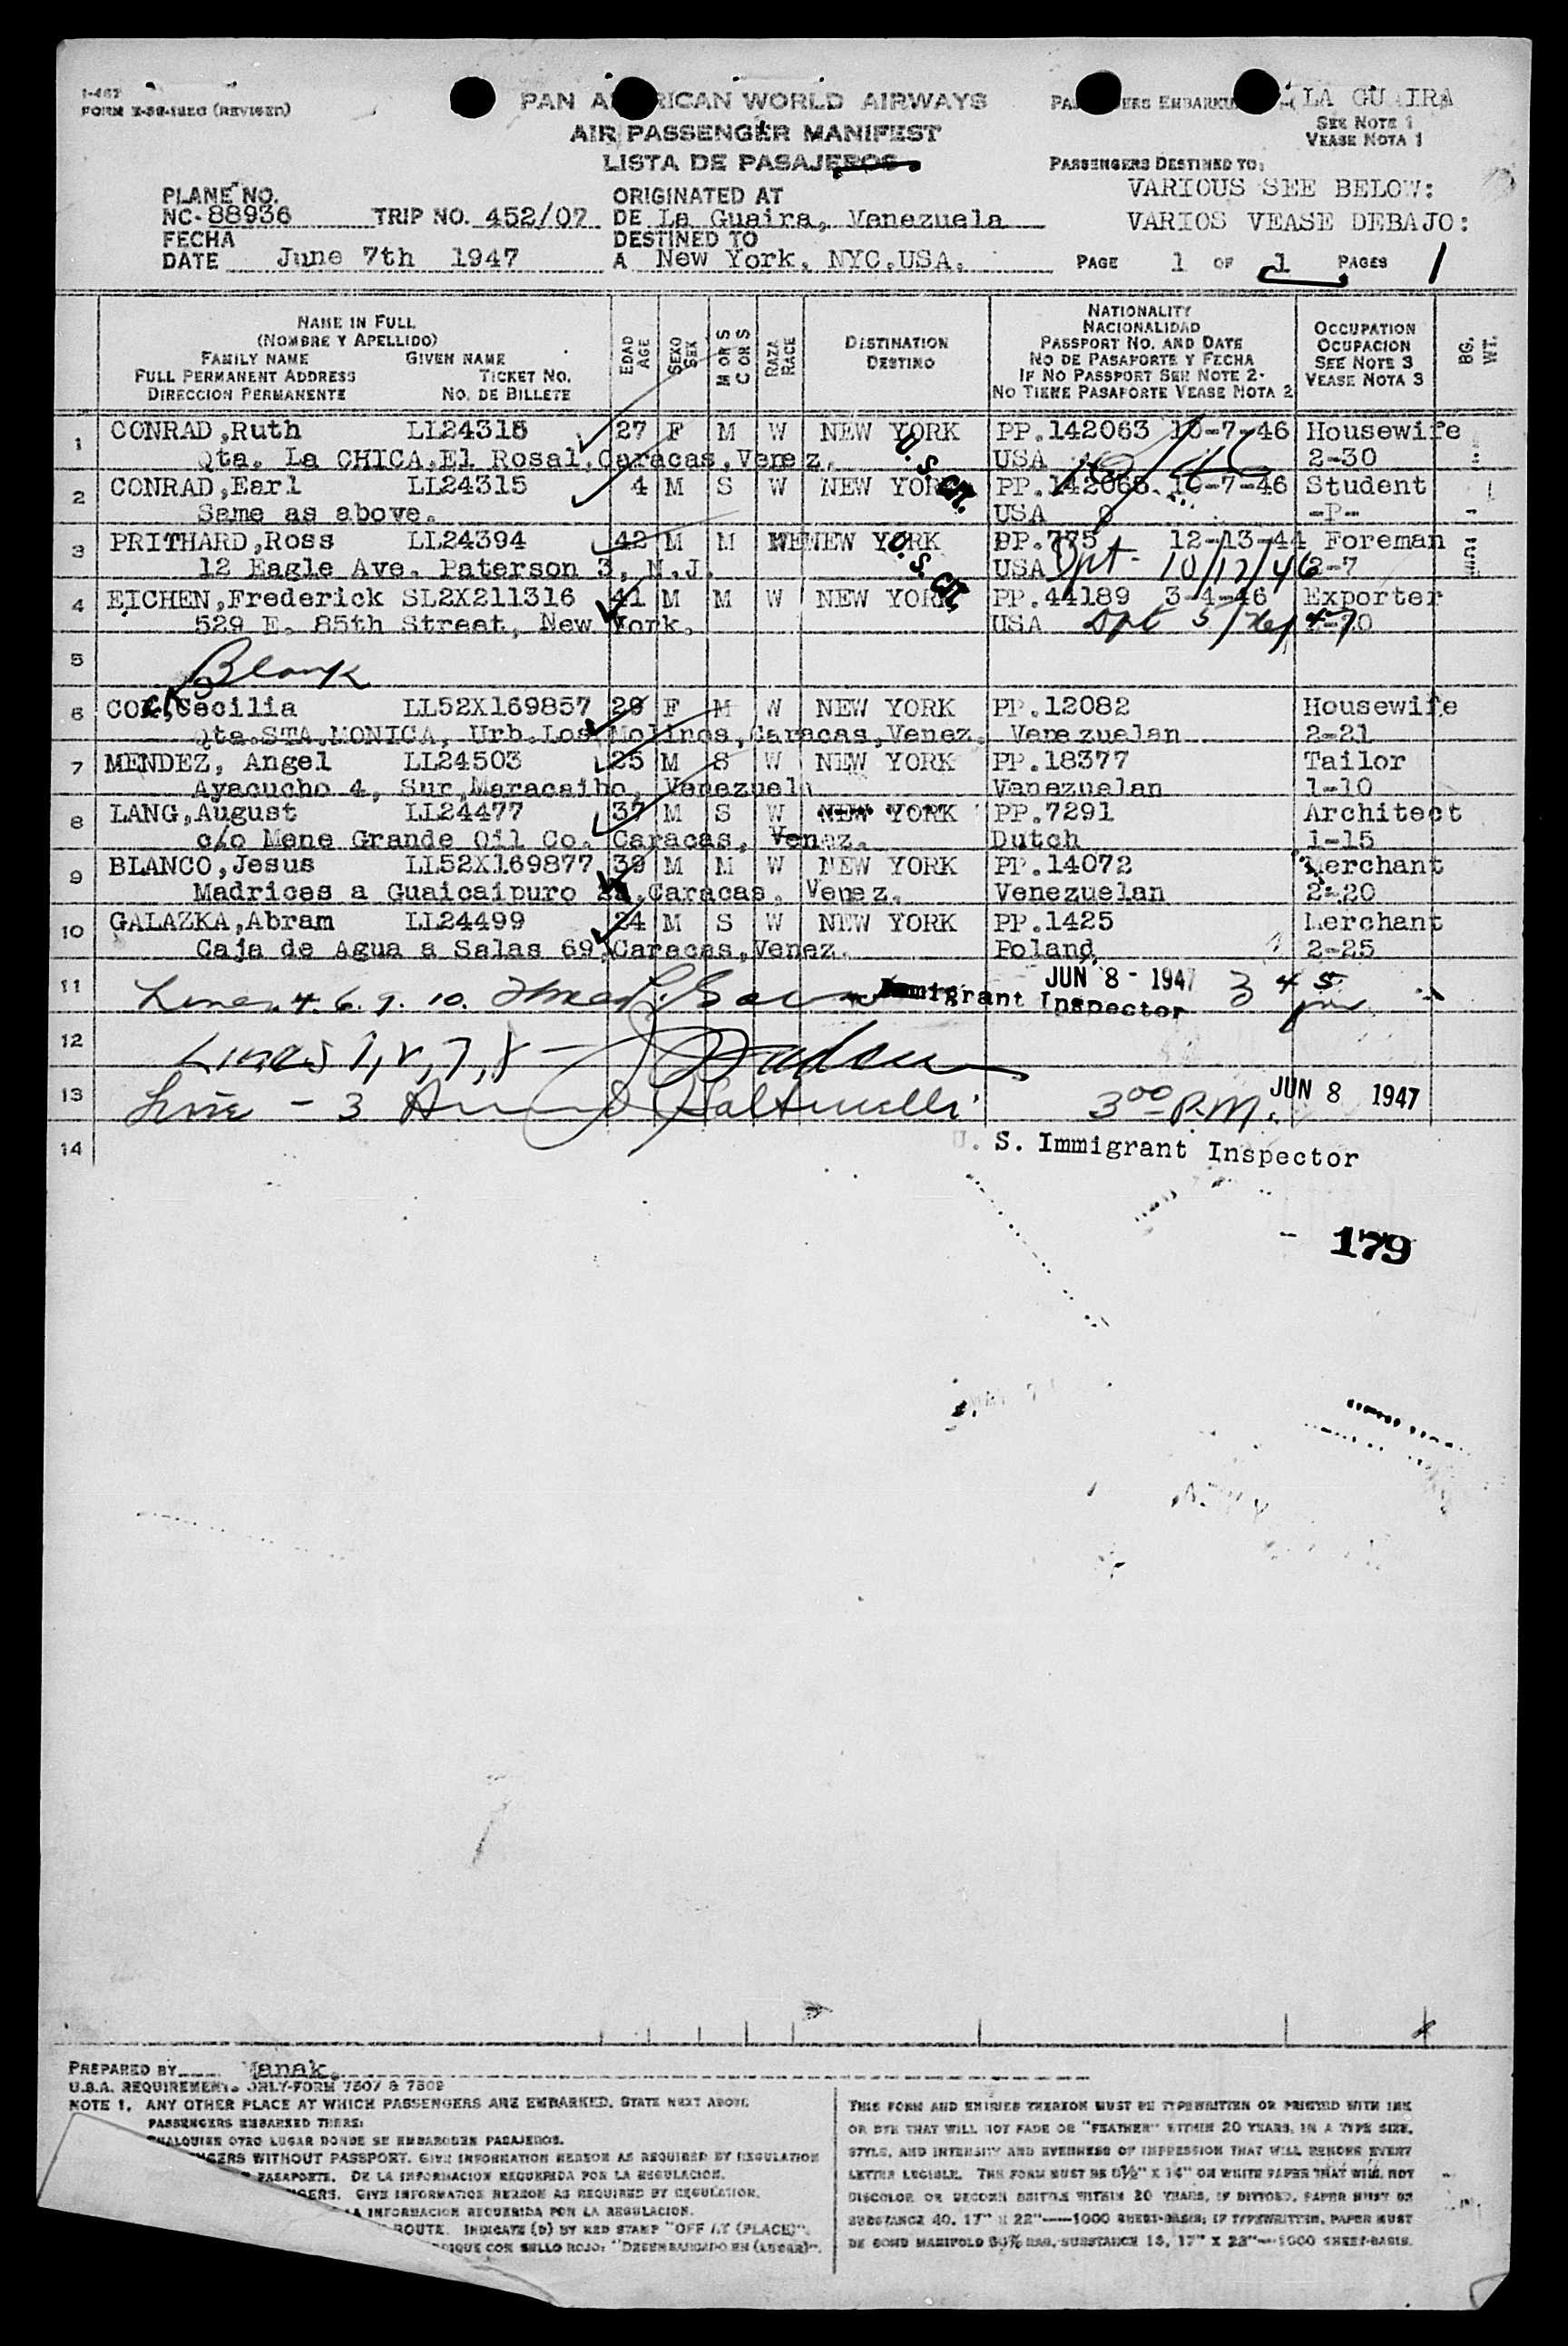 I-467
FORM X-38-12EG (REVISED)
PAN A RICAN WORLD AIRWAYS
AIR PASSENGER MANIFEST
LISTA DE PASAJEROS
LA GUAIRA
SEE NOTE 1
VEASE NOTA 1
PASSENGERS DESTINED TO:
VARIOUS SEE BELOW:
VARIOS VEASE DEBAJO:
PLANE NO.
NC-88936 TRIP NO. 452/07
FECHA
DATE June 7th 1947
ORIGINATED AT
DE La Guaira, Venezuela
DESTINED TO
A New York, NYC,USA.
PAGE 1 OF 1 PAGES 1
NAME IN FULL
(NOMBRE Y APELLIDO)
FAMILY NAME GIVEN NAME
FULL PERMANENT ADDRESS TICKET NO.
DIRECCION PERMANENTE NO. DE BILLETE
EDAD
AGE
SEXO
SEX
M OR S
C OR S
RAZA
RACE
DESTINATION
DESTINO
NATIONALITY
NACIONALIDAD
PASSPORT NO. AND DATE
NO DE PASAPORTE Y FECHA
IF NO PASSPORT SEE NOTE 2-
NO TIENE PASAPORTE VEASE NOTA 2
OCCUPATION
OCUPACION
SEE NOTE 3
VEASE NOTA 3
BG.
WT.
1 CONRAD,Ruth LL24315 27 F M W NEW YORK PP.142063 10-7-46 Housewife
Qta. La CHICA,El Rosal,Caracas,Venez. USA 2-30
U.S. CIT.
2 CONRAD,Earl LL24315 4 M S W NEW YORK PP.142065 10-7-46 Student
Same as above. USA -P-
3 PRITHARD,Ross LL24394 42 M M NEW YORK PP.775 12-13-44 Foreman
12 Eagle Ave. Paterson 3, N.J. USA Dpt - 10/12/46 2-7
U.S. CIT.
4 EICHEN,Frederick SL2X211316 41 M M W NEW YORK PP.44189 3-4-46 Exporter
529 E. 85th Street, New York. USA Dpt
5 Blank
6 Cecilia LL52X169857 29 F M W NEW YORK PP.12082 Housewife
Qta.STA.MONICA, Urb.Los Molinos,Caracas,Venez. Venezuelan 2-21
7 MENDEZ, Angel LL24503 25 M S W NEW YORK PP.18377 Tailor
Ayacucho 4, Sur,Maracaibo, Venezuela Venezuelan 1-10
8 LANG,August LL24477 37 M S W NEW YORK PP.7291 Architect
c/o Mene Grande Oil Co. Caracas, Venez. Dutch 1-15
9 BLANCO,Jesus LL52X169877 39 M M W NEW YORK PP.14072 Merchant
Madrices a Guaicaipuro Caracas, Venez. Venezuelan 2-20
10 GALAZKA,Abram LL24499 24 M S W NEW YORK PP.1425 Merchant
Caja de Agua a Salas 69,Caracas,Venez. Poland 2-25
11 Lines 4. 6. 9. 10. JUN 8 - 1947 3 45 pm
Immigrant Inspector
12 Lines 1, 2, 7, 8 -
13 Line - 3 3 00 P.M. JUN 8 1947
14 U. S. Immigrant Inspector
179
PREPARED BY Manak.
U.S.A. REQUIREMENTS ONLY-FORM 7507 & 7509
NOTE 1. ANY OTHER PLACE AT WHICH PASSENGERS ARE EMBARKED. STATE NEXT ABOVE
PASSENGERS EMBARKED THERE:
CUALQUIER OTRO LUGAR DONDE SE EMBARQUEN PASAJEROS.
NGERS WITHOUT PASSPORT. GIVE INFORMATION HEREON AS REQUIRED BY REGULATION
PASAPORTE. DE LA INFORMACION REQUERIDA POR LA REGULACION.
NGERS. GIVE INFORMATION HEREON AS REQUIRED BY REGULATION.
LA INFORMACION REQUERIDA POR LA REGULACION.
ROUTE. INDICATE (D) BY RED STAMP "OFF AT (PLACE)".
DIQUE CON SELLO ROJO: "DESEMBARCADO EN (LUGAR)".
THIS FORM AND ENTRIES THEREON MUST BE TYPEWRITTEN OR PRINTED WITH INK
OR DYE THAT WILL NOT FADE OR "FEATHER" WITHIN 20 YEARS, IN A TYPE SIZE,
STYLE, AND INTENSITY AND EVENNESS OF IMPRESSION THAT WILL RENDER EVERY
LETTER LEGIBLE. THE FORM MUST BE 8½" X 14" ON WHITE PAPER THAT WILL NOT
DISCOLOR OR BECOME BRITTLE WITHIN 20 YEARS, IF DITTOED, PAPER MUST BE
SUBSTANCE 40, 17" X 22"—1000 SHEET-BASIS; IF TYPEWRITTEN, PAPER MUST
BE BOND MANIFOLD 50% RAG, SUBSTANCE 16, 17" X 22"—1000 SHEET-BASIS.